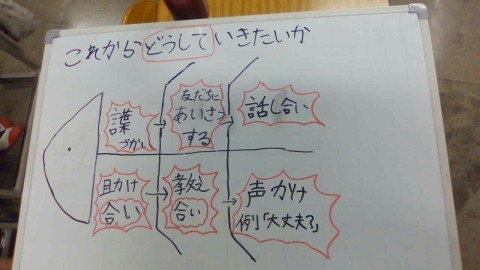 これからどうしていきたいか
友だちに
あいさつ
する
話し合い
助け
合い
教え
合い
声かけ
例「大丈夫?」